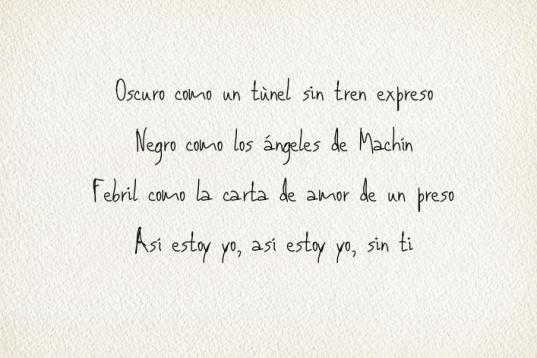 Oscuro como un tùnel sin tren expreso
Negro como los ángeles de Machín
Febril como la carta de amor de un preso
Así estoy yo, así estoy yo, sin ti